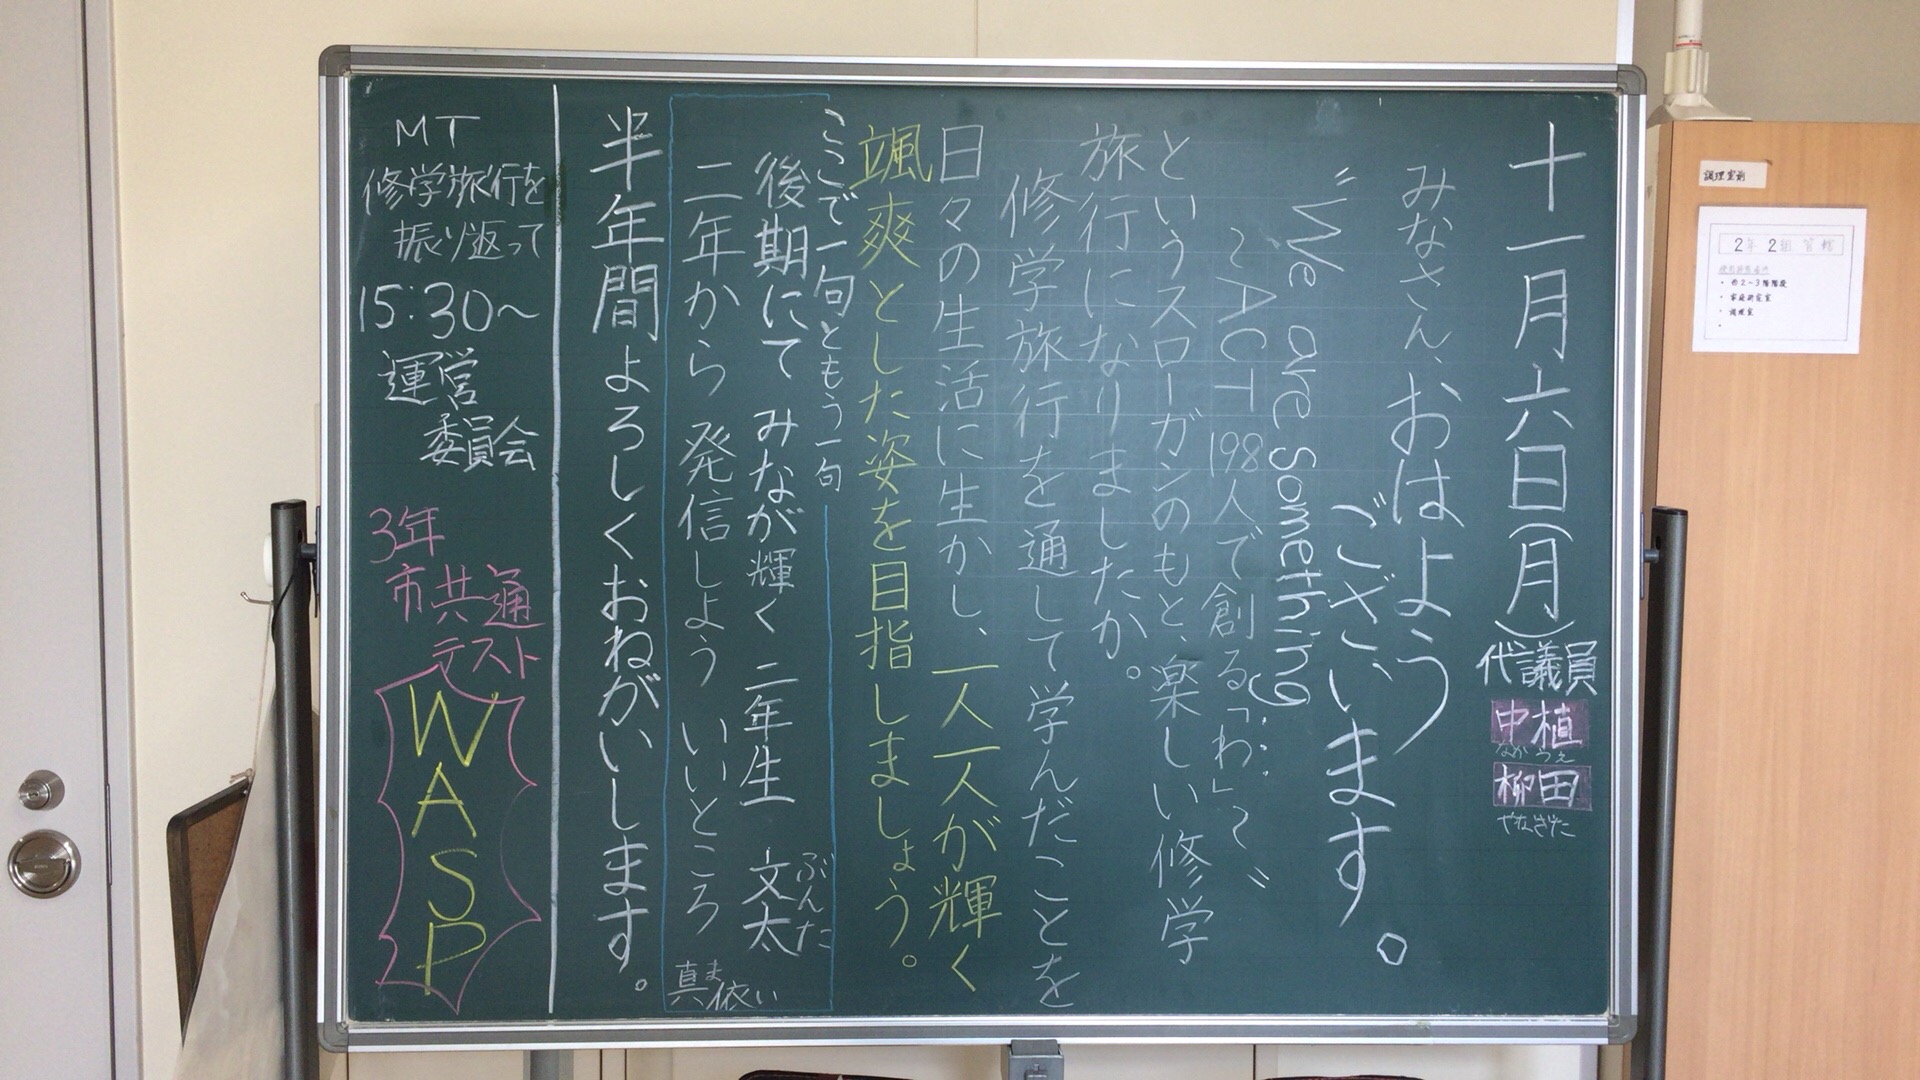 十一月六日(月)代議員
中植
なかうえ
柳田
やなぎた
みなさん、おはよう
ございます。
"We are Something
~ACT 198人で創る「わ」~"
というスローガンのもと、楽しい修学
旅行になりましたか。
修学旅行を通して学んだことを
日々の生活に生かし、一人一人が輝く
颯爽とした姿を目指しましょう。
ここで一句ともう一句
後期にて みなが輝く 二年生 文太
ぶんた
二年から 発信しよう いいところ
真依
まい
半年間よろしくおねがいします。
MT
修学旅行を
振り返って
15:30~
運営
委員会
3年
市共通
テスト
WASP
調理室前
2年2組管轄
・西2~3階階段
・調理室